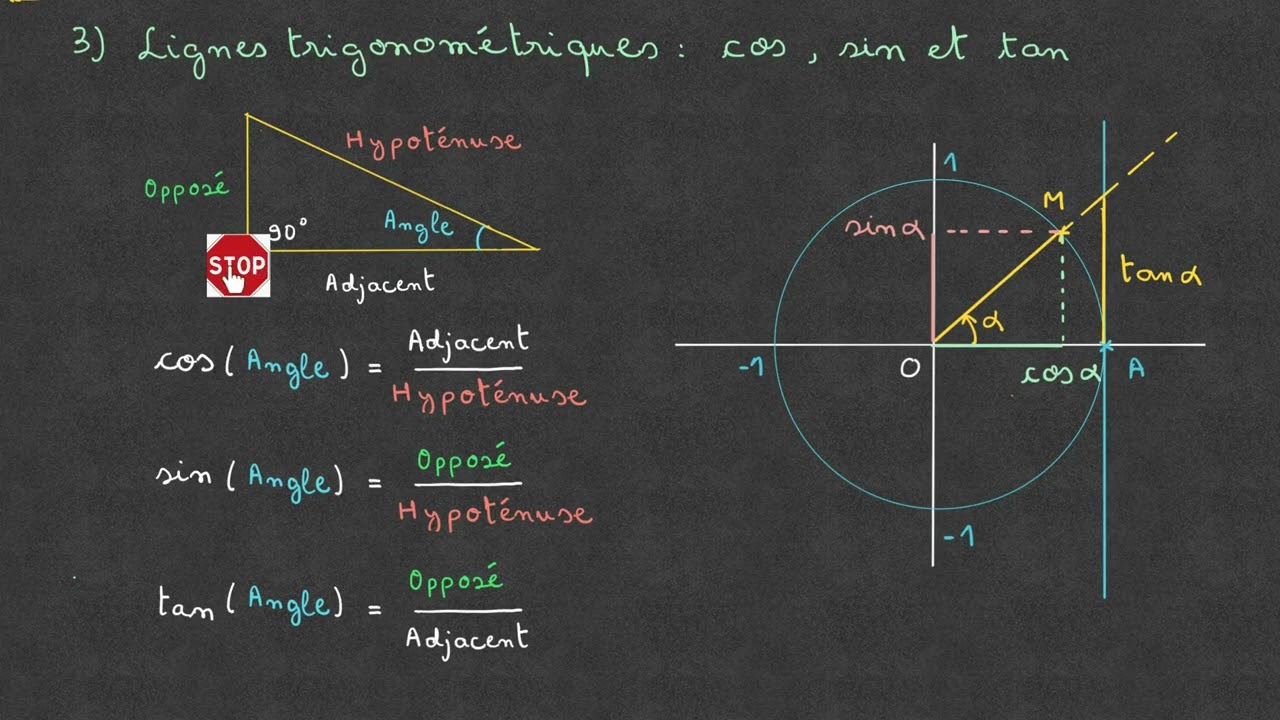 3) Lignes trigonométriques : cos, sin et tan
Hypoténuse
Opposé
Angle
90°
STOP
Adjacent
cos(Angle) = Adjacent
Hypoténuse
sin(Angle) = Opposé
Hypoténuse
tan(Angle) = Opposé
Adjacent
1
M
sin α
tan α
α
-1
O
cos α
A
-1